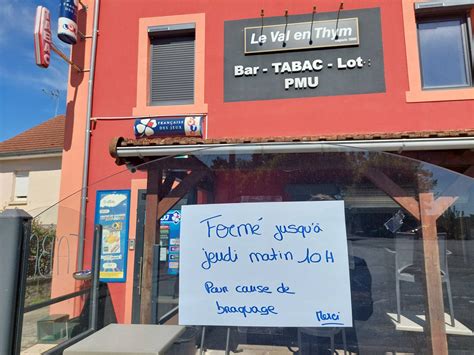 Le Val en Thym
Bar - TABAC - Loto
PMU
FRANÇAISE
DES JEUX
Fermé jusqu'à
jeudi matin 10H
Pour cause de
braquage
Merci